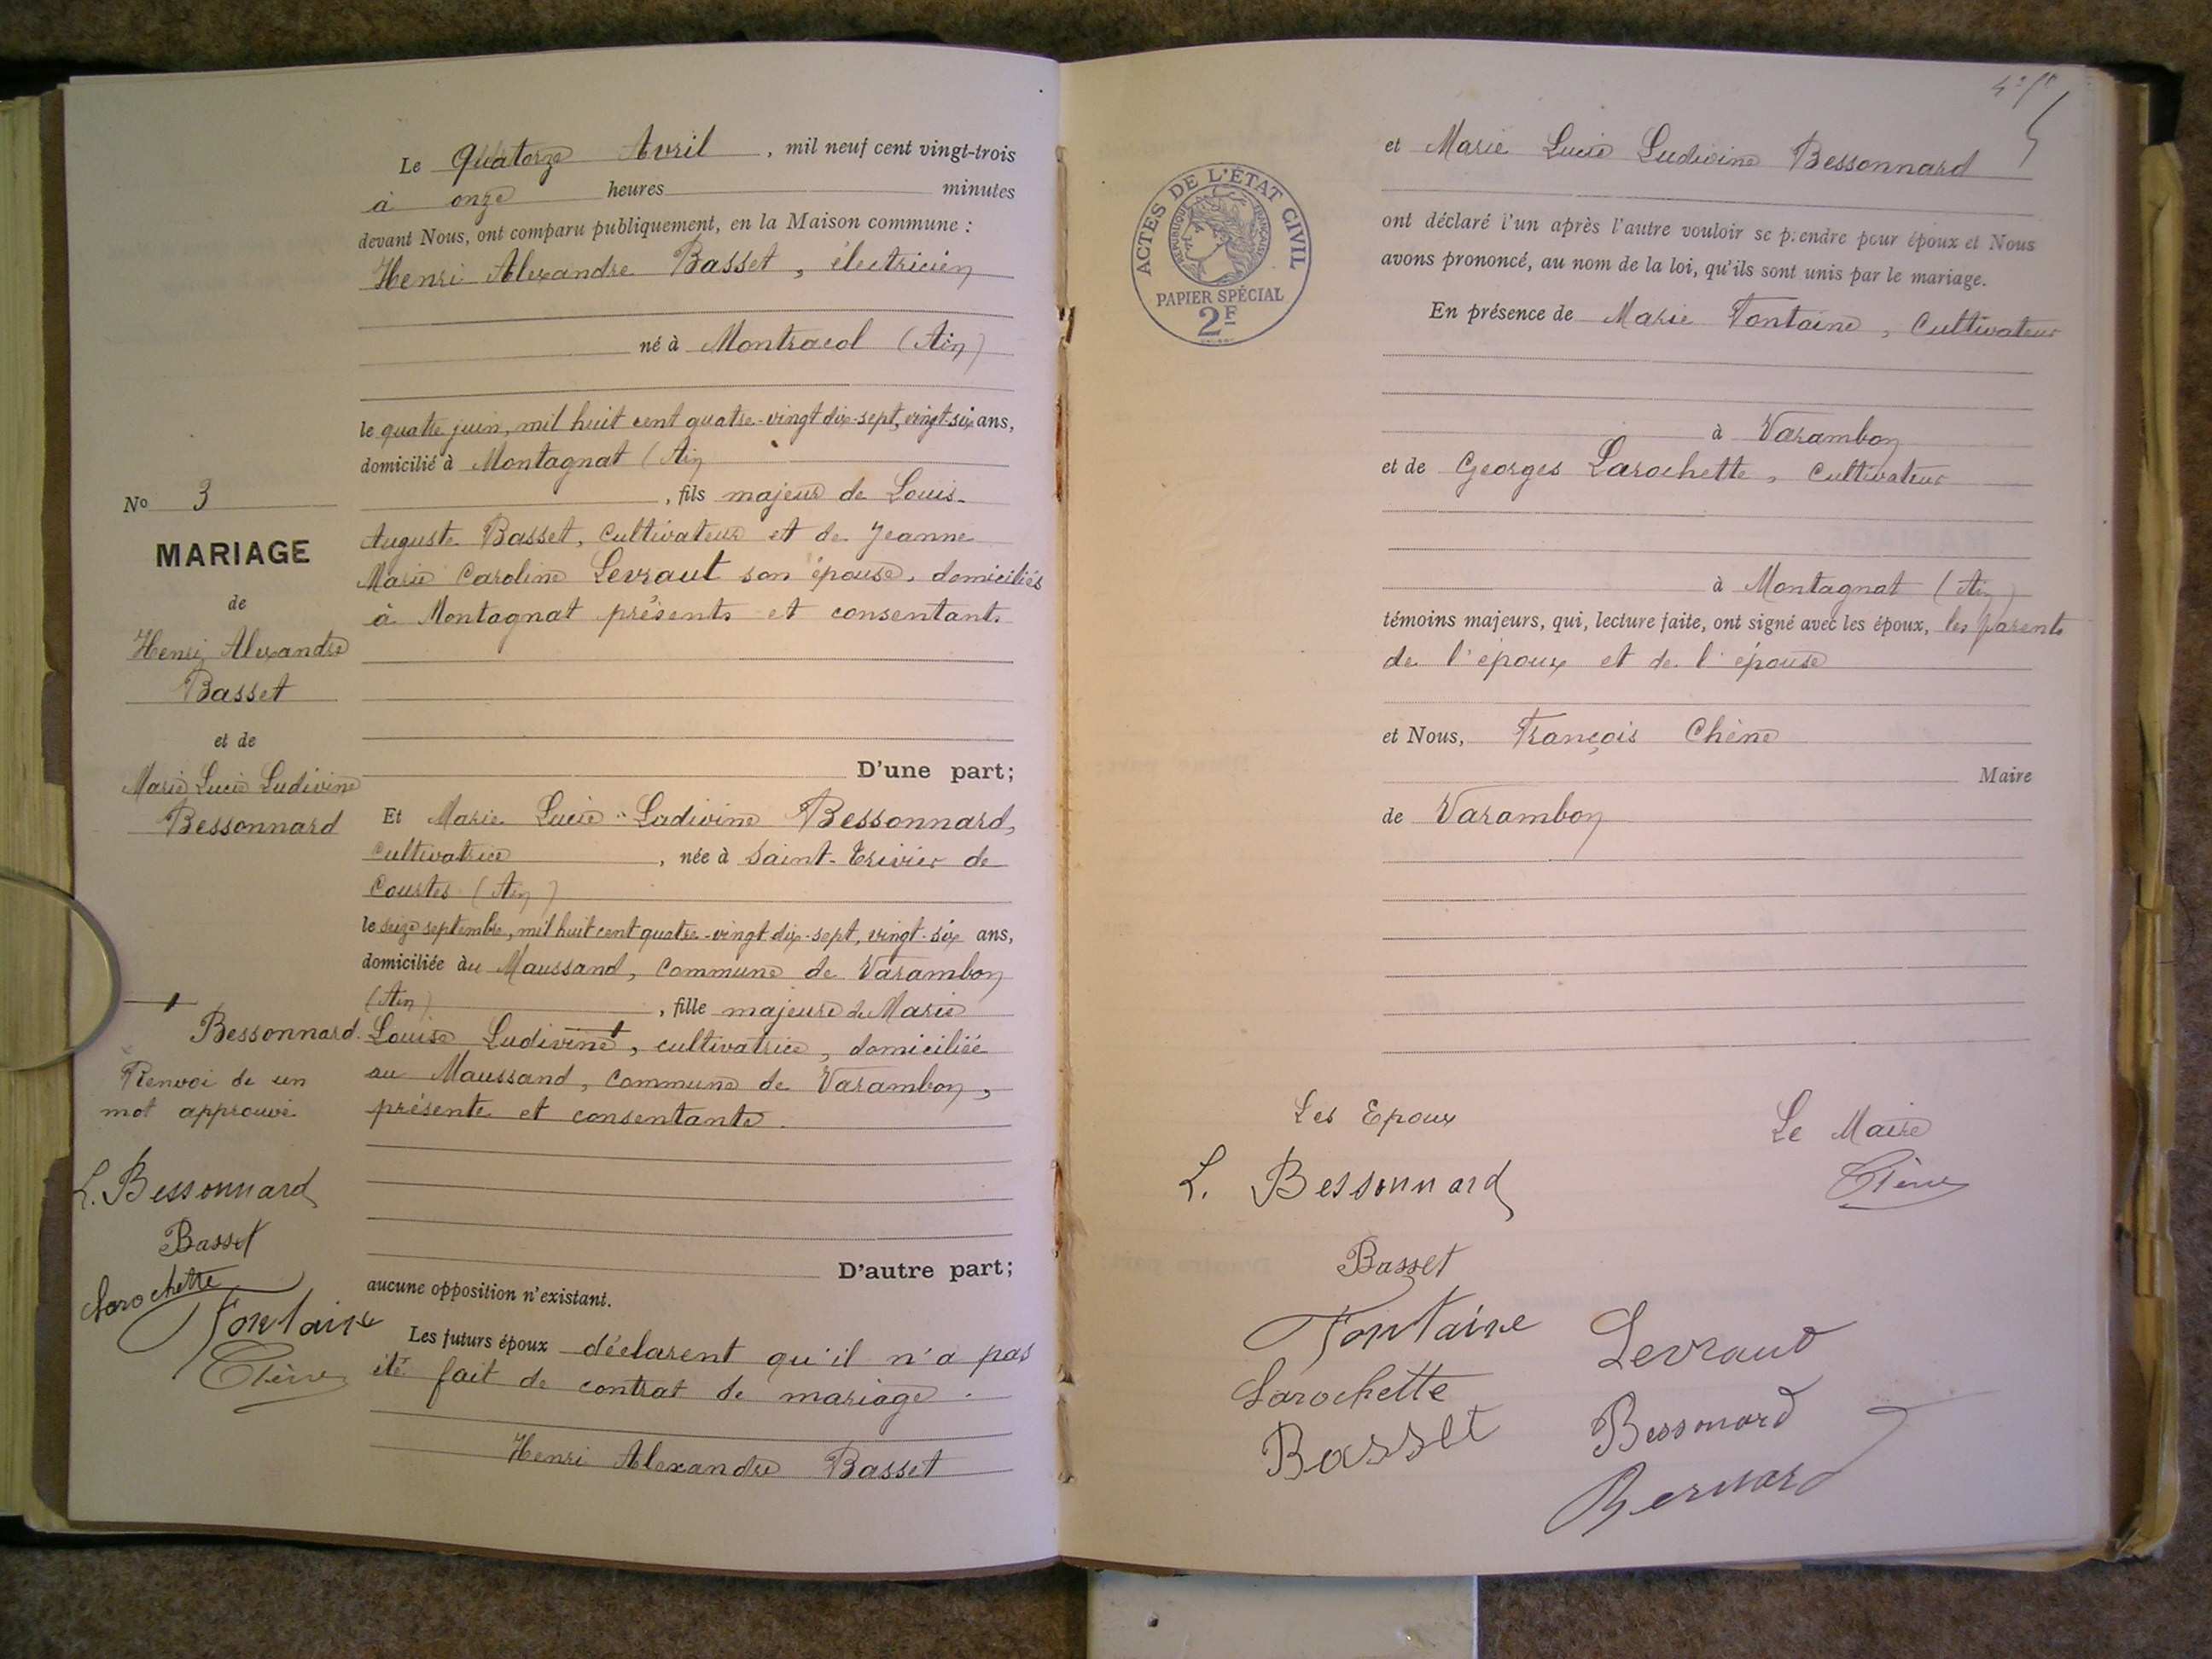 Le quatorze Avril, mil neuf cent vingt-trois
à onze heures minutes
devant Nous, ont comparu publiquement, en la Maison commune :
Henri Alexandre Basset, électricien
né à Montracol (Ain)
le quatre juin, mil huit cent quatre-vingt dix-sept, vingt-six ans,
domicilié à Montagnat (Ain
, fils majeur de Louis-
Auguste Basset, Cultivateur et de Jeanne
Marie Caroline Levraut son épouse, domiciliés
à Montagnat présents et consentants
D'une part;
Et Marie Lucie Ludivine Bessonnard,
Cultivatrice, née à Saint-Trivier de
Courtes (Ain)
le seize septembre, mil huit cent quatre-vingt dix-sept, vingt-six ans,
domiciliée au Maussand, Commune de Varambon
(Ain), fille majeure de Marie
Louise Ludivine, cultivatrice, domiciliée
au Maussand, Commune de Varambon,
présente et consentante.
D'autre part;
aucune opposition n'existant.
Les futurs époux déclarent qu'il n'a pas
été fait de contrat de mariage.
Henri Alexandre Basset
No 3
MARIAGE
de
Henri Alexandre
Basset
et de
Marie Lucie Ludivine
Bessonnard
Bessonnard.
Renvoi de un
mot approuvé
L. Bessonnard
Basset
Larochette
Fontaine
Chêne
et Marie Lucie Ludivine Bessonnard
ont déclaré l'un après l'autre vouloir se prendre pour époux et Nous
avons prononcé, au nom de la loi, qu'ils sont unis par le mariage.
En présence de Marie Fontaine, Cultivateur
à Varambon
et de Georges Larochette, Cultivateur
à Montagnat (Ain)
témoins majeurs, qui, lecture faite, ont signé avec les époux, les parents
de l'époux et de l'épouse
et Nous, François Chêne
Maire
de Varambon
Les Epoux
Le Maire
L. Bessonnard
Chêne
Basset
Fontaine
Levraud
Larochette
Bessonard
Basset
Bernard
ACTES DE L'ÉTAT CIVIL
RÉPUBLIQUE FRANÇAISE
PAPIER SPÉCIAL
2F